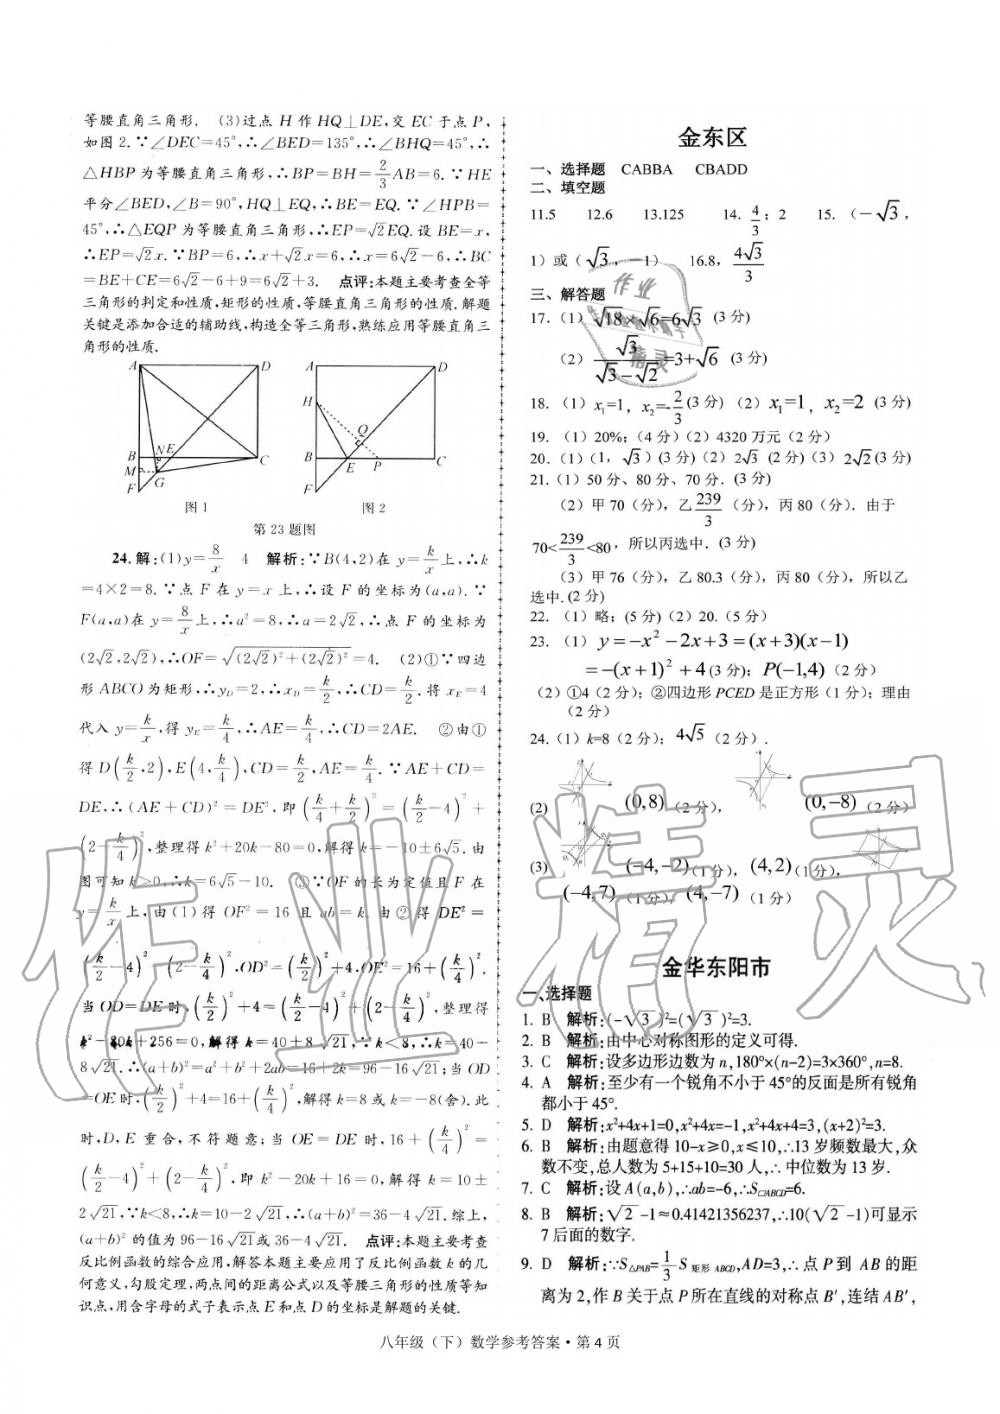 等腰直角三角形. (3)过点 H 作 HQ⊥DE,交 EC 于点 P,
如图 2.∵∠DEC=45°,∴∠BED=135°,∴∠BHQ=45°,∴
△HBP 为等腰直角三角形,∴BP=BH=2/3AB=6.∵HE
平分∠BED,∠B=90°,HQ⊥EQ,∴BE=EQ.∵∠HPB=
45°,∴△EQP 为等腰直角三角形,∴EP=√2EQ.设 BE=x,
∴EP=√2x.∵BP=6,∴x+√2x=6,∴x=6√2-6,∴BC
=BE+CE=6√2-6+9=6√2+3. 点评:本题主要考查全等
三角形的判定和性质,矩形的性质,等腰直角三角形的性质.解题
关键是添加合适的辅助线,构造全等三角形,熟练应用等腰直角三
角形的性质.
A D B N E C M G F
图 1
A D H Q B E P C F
图 2
第 23 题图
24.解:(1)y=8/x 4 解析:∵B(4,2)在 y=k/x上,∴k
=4×2=8.∵点 F 在 y=x 上,∴设 F 的坐标为(a,a).∵
F(a,a)在 y=8/x上,∴a²=8,∴a=2√2,∴点 F 的坐标为
(2√2,2√2),∴OF=√((2√2)²+(2√2)²)=4. (2)①∵四边
形 ABCO 为矩形,∴y_D=2,∴x_D=k/2,∴CD=k/2.将 x_E=4
代入 y=k/x,得 y_E=k/4,∴AE=k/4,∴CD=2AE. ②由①
得 D(k/2,2),E(4,k/4),CD=k/2,AE=k/4.∵AE+CD=
DE,∴(AE+CD)²=DE²,即(k/2+k/4)²=(k/2-4)²+
(2-k/4)²,整理得 k²+20k-80=0,解得 k=-10±6√5.由
图可知 k>0,∴k=6√5-10. ③∵OF 的长为定值且 F 在
y=k/x上,由(1)得 OF²=16 且 ab=k.由②得 DE²=
(k/2-4)²+(2-k/4)²,OD²=(k/2)²+4,OE²=16+(k/4)².
当 OD=DE 时,(k/2)²+4=(k/2-4)²+(2-k/4)²,整理得
k²-80k+256=0,解得 k=40±8√21,∵k<8,∴k=40-
8√21.∴(a+b)²=a²+b²+2ab=16+2k=96-16√21;当 OD
=OE 时,(k/2)²+4=16+(k/4)²,解得 k=8 或 k=-8(舍).此
时,D,E 重合,不符题意;当 OE=DE 时,16+(k/4)²=
(k/2-4)²+(2-k/4)²,即 k²-20k+16=0,解得 k=10±
2√21,∵k<8,∴k=10-2√21,∴(a+b)²=36-4√21.综上,
(a+b)² 的值为 96-16√21或 36-4√21. 点评:本题主要考查
反比例函数的综合应用,解答本题主要应用了反比例函数 k 的几
何意义,勾股定理,两点间的距离公式以及等腰三角形的性质等知
识点,用含字母的式子表示点 E 和点 D 的坐标是解题的关键.
金东区
一、选择题 CABBA CBADD
二、填空题
11.5 12.6 13.125 14. 4/3;2 15.(-√3,
1)或(√3,-1) 16.8,4√3/3
三、解答题
17.(1)√18×√6=6√3 (3分)
(2)√3/(√3-√2)=3+√6 (3分)
18.(1)x₁=1,x₂=-2/3(3分)(2)x₁=1,x₂=2 (3分)
19.(1)20%;(4分)(2)4320 万元(2分)
20.(1)(1,√3)(3分)(2)2√3 (2分)(3)2√2(3分)
21.(1)50 分、80 分、70 分.(3分)
(2)甲 70(分),乙239/3(分),丙 80(分).由于
70<239/3<80,所以丙选中.(3分)
(3)甲 76(分),乙 80.3(分),丙 80(分),所以乙
选中.(2分)
22.(1)略;(5分)(2)20.(5分)
23.(1)y=-x²-2x+3=(x+3)(x-1)
=-(x+1)²+4(3分);P(-1,4)(2分)
(2)①4(2分);②四边形 PCED 是正方形(1分);理由
(2分)
24.(1)k=8(2分);4√5(2分).
(2) (0,8)(2分), (0,-8)(2分)
(3) (-4,-2)(1分), (4,2)(1分),
(-4,7)(1分), (4,-7)(1分)
金华东阳市
一、选择题
1. B 解析:(-√3)²=(√3)²=3.
2. B 解析:由中心对称图形的定义可得.
3. C 解析:设多边形边数为 n,180°×(n-2)=3×360°,n=8.
4. A 解析:至少有一个锐角不小于 45°的反面是所有锐角
都小于 45°.
5. D 解析:x²+4x+1=0,x²+4x=-1,x²+4x+4=3,(x+2)²=3.
6. B 解析:由题意得 10-x≥0,x≤10,∴13 岁频数最大,众
数不变,总人数为 5+15+10=30 人,∴中位数为 13 岁.
7. C 解析:设 A(a,b),∴ab=-6,∴S□ABCD=6.
8. B 解析:√2-1≈0.41421356237,∴10(√2-1)可显示
7 后面的数字.
9. D 解析:∵S△PAB=1/3S矩形ABCD,AD=3,∴点 P 到 AB 的距
离为 2,作 B 关于点 P 所在直线的对称点 B′,连结 AB′,
八年级(下)数学参考答案·第 4 页
作业精灵